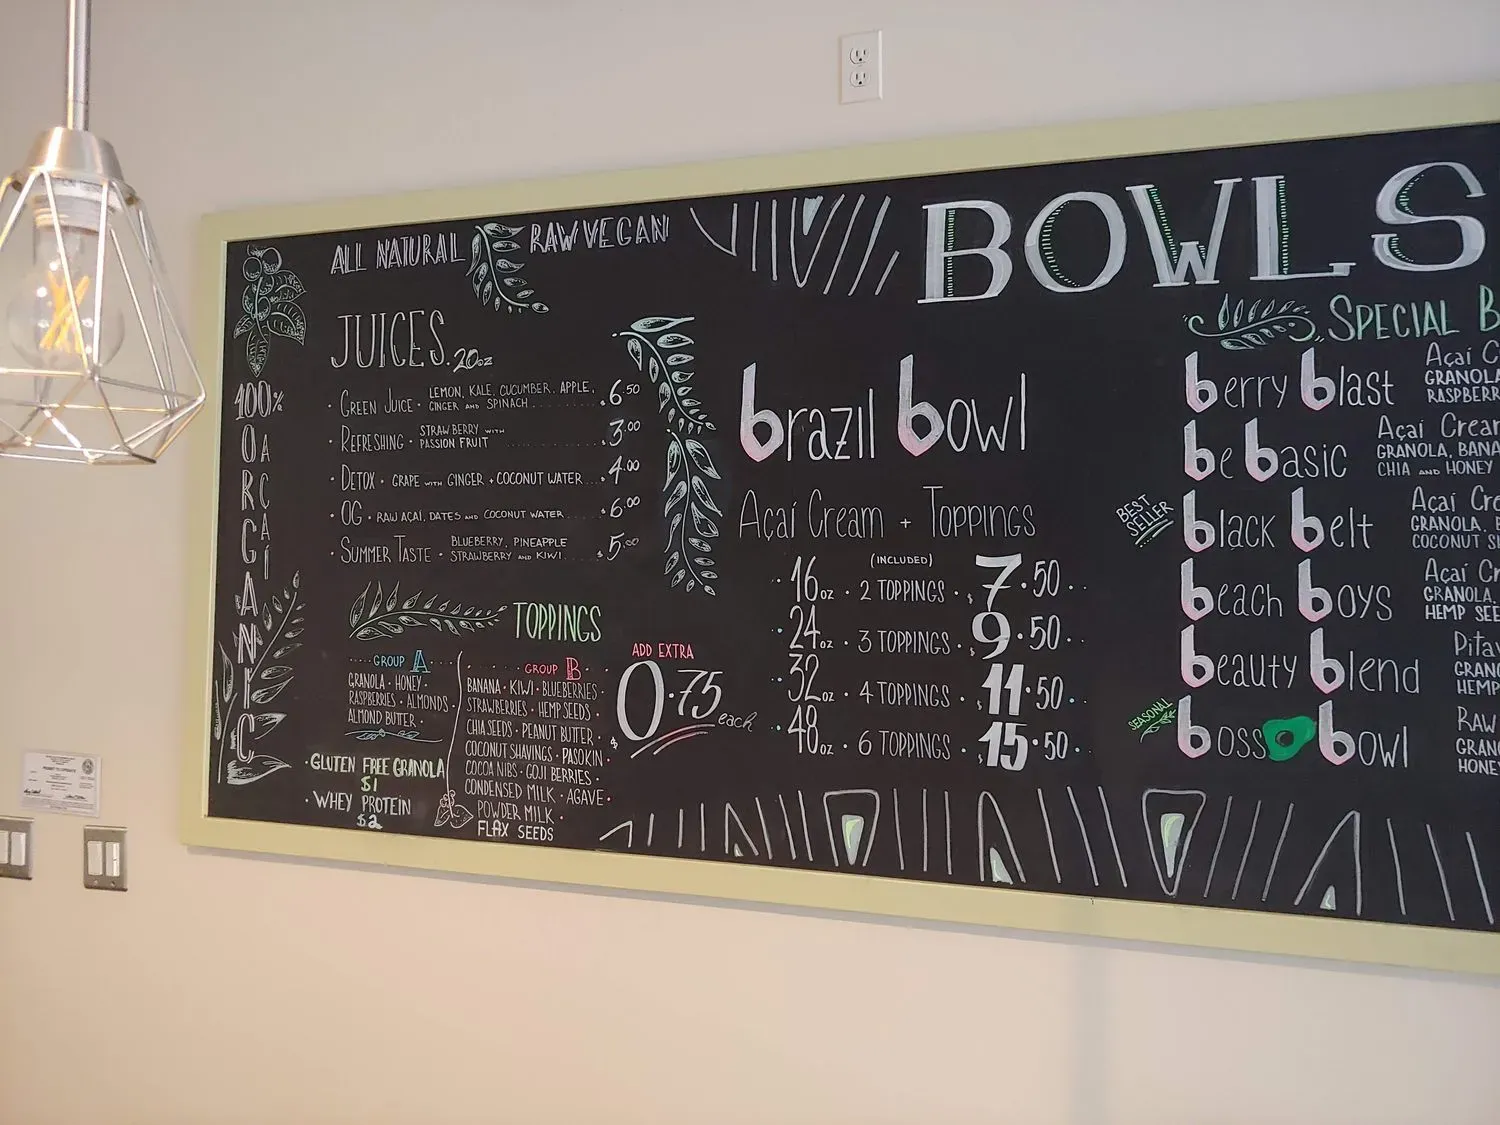 ALL NATURAL RAW VEGAN
100% ORGANIC
AÇAÍ
JUICES. 20oz
· GREEN JUICE · LEMON, KALE, CUCUMBER, APPLE,
GINGER AND SPINACH ......... $6.50
· REFRESHING · STRAWBERRY WITH
PASSION FRUIT ......... $3.00
· DETOX · GRAPE WITH GINGER + COCONUT WATER ..... $4.00
· OG · RAW AÇAÍ, DATES AND COCONUT WATER ..... $6.00
· SUMMER TASTE · BLUEBERRY, PINEAPPLE
STRAWBERRY AND KIWI ..... $5.00
TOPPINGS
GROUP A
GRANOLA · HONEY ·
RASPBERRIES · ALMONDS ·
ALMOND BUTTER ·
· GLUTEN FREE GRANOLA
$1
· WHEY PROTEIN
$2
GROUP B
BANANA · KIWI · BLUEBERRIES ·
STRAWBERRIES · HEMP SEEDS ·
CHIA SEEDS · PEANUT BUTTER ·
COCONUT SHAVINGS · PASOKIN ·
COCOA NIBS · GOJI BERRIES ·
CONDENSED MILK · AGAVE ·
POWDER MILK ·
FLAX SEEDS
ADD EXTRA
$0.75 each
BOWLS
brazil bowl
Açaí Cream + Toppings
(INCLUDED)
16oz · 2 TOPPINGS · $7.50
24oz · 3 TOPPINGS · $9.50
32oz · 4 TOPPINGS · $11.50
48oz · 6 TOPPINGS · $15.50
SPECIAL B
berry blast Açaí C
GRANOLA
RASPBERR
be basic Açaí Crear
GRANOLA, BANA
CHIA AND HONEY
BEST
SELLER
black belt Açaí Cre
GRANOLA, B
COCONUT S
beach boys Açaí Cr
GRANOLA,
HEMP SEE
beauty blend Pitay
GRANO
HEMP
SEASONAL
boss bowl RAW
GRANO
HONEY